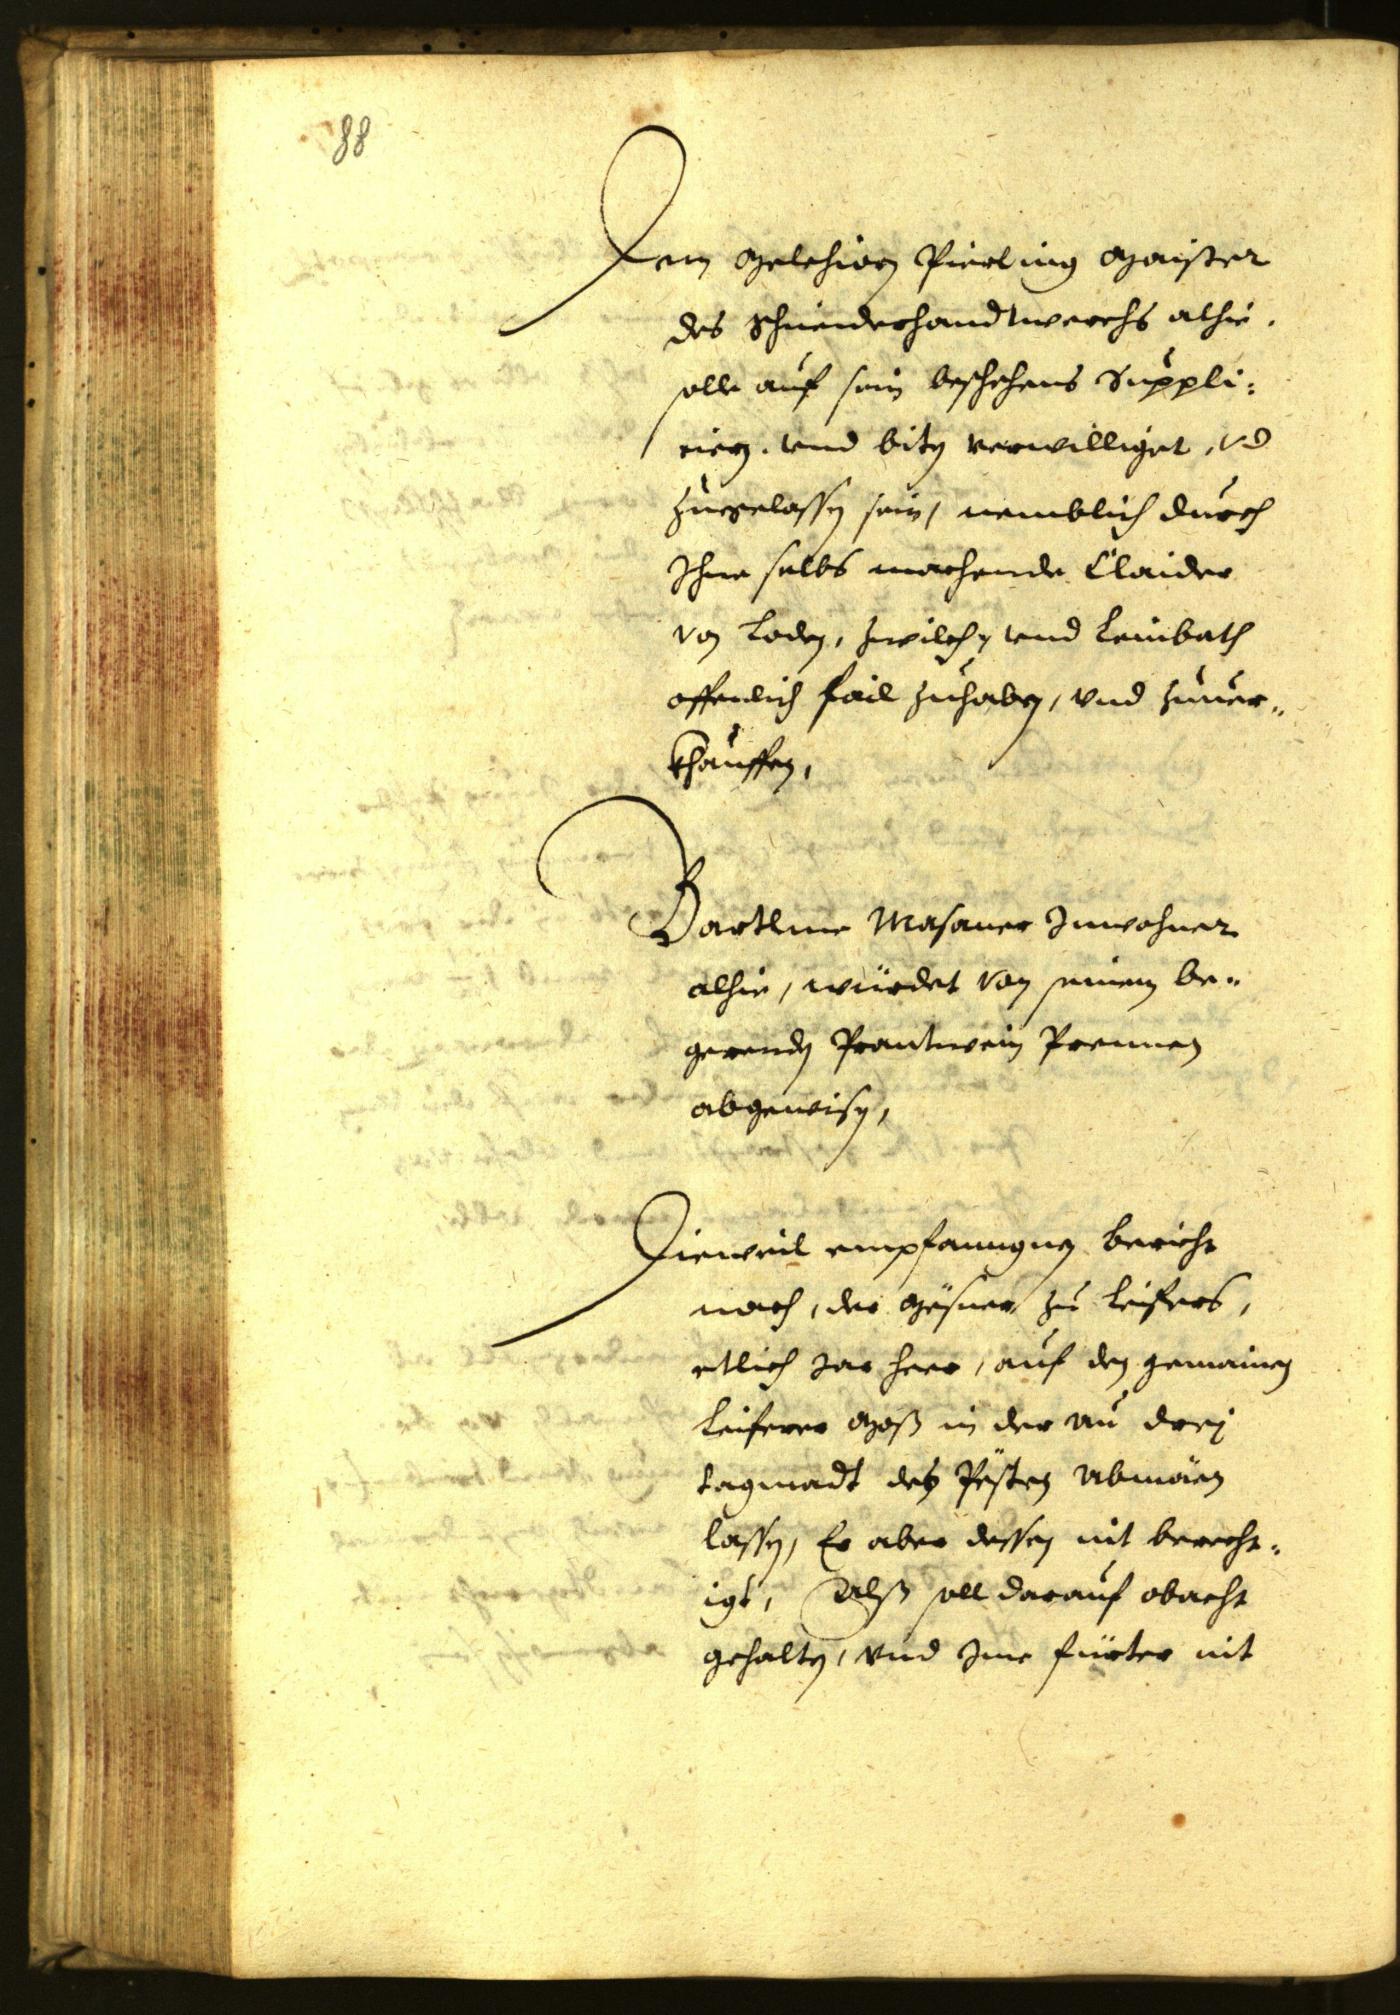 88
Dem Melchiorn Pierling Maister
des Schneiderhandtwerchs alhie,
solle auf sein beschehens Suppli¬
ciern, und biten verwilliget, vnd
zuegelassen sein, nemblich durch
Ihne selbs machende Claider
von Loden, Zwilchen und Leinbath
offentlich fail zuhaben, vnd zuuer¬
khauffen,
Bartlme Masaner Inwohner
alhie, würdet von seinem be¬
gerenden Prantwein Prennen
abgewisen,
Dieweil empfanngnen bericht
nach, der Mesner zu Leifers,
etlich Jar heer, auf den gemainen
Leiferer Moß in der Au drej
tagmadt des Pesten Abmäen
lassen, Er aber dessen nit berecht¬
igt, Alß soll darauf obacht
gehalten, vnd Ime fürter nit